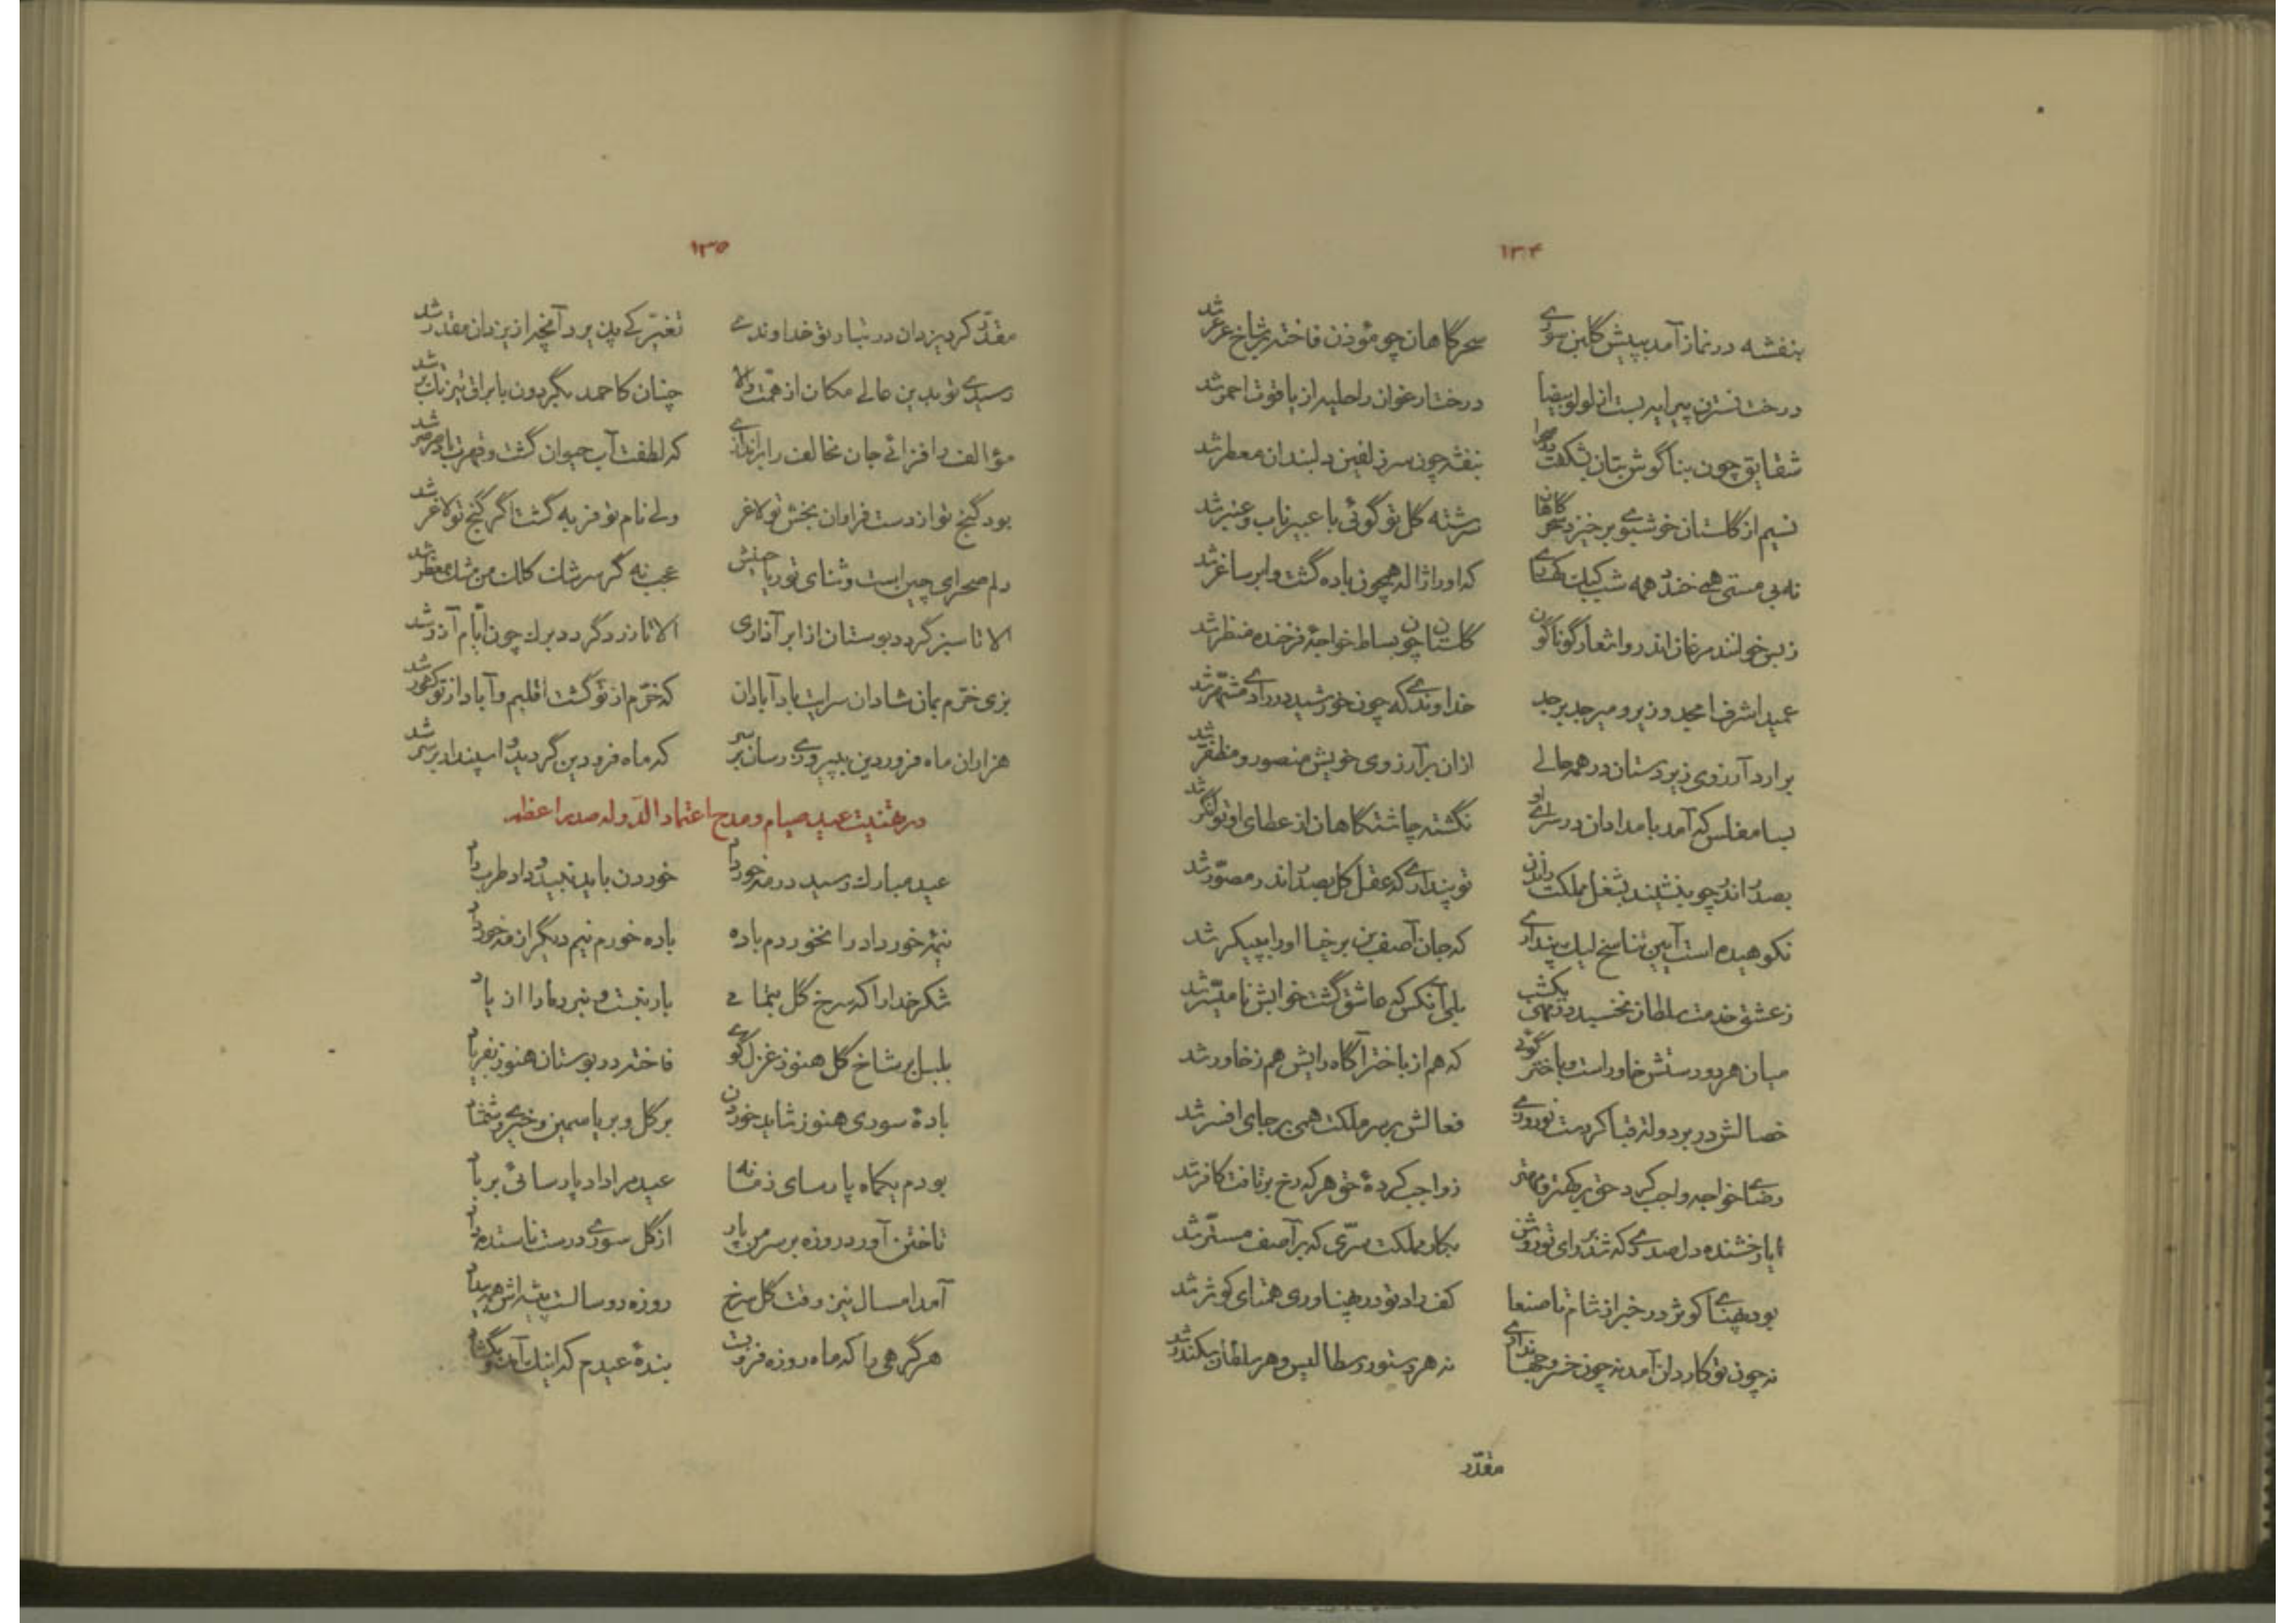 ۱۳۴
بنفشه در نماز آمد به پیش گلبن سوری سحرگاهان چو مؤذن فاخته بر شاخ عرعر شد
درخت نسترن پیرایه بست از لولو بیضا درخت ارغوان را حلیه از یاقوت احمر شد
شقایق چون بناگوش بتان بشکفت بنفشه چون سر زلفین دلبندان معطر شد
نسیم از گلستان خوشبوی برخیزد سحرگاهان سرشته گل تو گوئی با عبیر ناب و عنبر شد
نه بی مستی همی خندد همه شب کبک که او را ژاله همچون باده گشت و ابر ساغر شد
ز بس خوانند مرغان اندر او اشعار گوناگون گلستان چون بساط خواجهٔ فرخنده منظر شد
عمید اشرف امجد وزیر و میر جد بر جد خداوندی که چون خورشید در رادی مشتهر شد
برارد آرزوی زیردستان در همه حالی ازان بر آرزوی خویش منصور و مظفر شد
بسا مفلس که آمد بامدادان در سرای او نگشته چاشتگاهان از عطای او توانگر شد
بصدر اندر چو بنشیند بشغل مملکت راندن تو پنداری که عقل کل بصدر اندر مصور شد
نکوهیده است آیین تناسخ لیک پنداری که جان آصف بن برخیا او را به پیکر شد
ز عشق خدمت سلطان نخسبد در دو مه یکشب بلی آنکس که عاشق گشت خوابش نامیسر شد
میان هر دو دستش خاور است و باختر گوئی که هم از باختر آگاه رایش هم ز خاور شد
خصالش در بر دولت قبا کردست نوروزی فعالش بر سر ملکت همی بر جای افسر شد
رضای خواجه واجب کرد حق بر کهتر و مهتر ز واجب کردهٔ حق هر که رخ برتافت کافر شد
ایا رخشنده دل صدری که شد بر رای تو روشن بکار مملکت سرّی که بر آصف مستّر شد
بود پهنای کوثر در خبر از شام تا صنعا کف راد تو در پهناوری همتای کوثر شد
نه چون تو کاردان آمد نه چون خسرو جهانداری نه هر دستور رسطالیس و هر سلطان سکندر شد
مقدّر
۱۳۵
مقدّر کرد یزدان در تبار تو خداوندی تغیّر کی پذیرد آنچه از یزدان مقدر شد
رسیدی تو بدین عالی مکان از همّت والا چنان کاحمد بگردون با براق تیزتک بر شد
مؤالف را فزائی جان مخالف را براندازی که لطفت آب حیوان گشت و قهرت باد صرصر شد
بود گنج تو از دست فراوان بخش تو لاغر ولی نام تو فربه گشت اگر گنج تو لاغر شد
دلم صحرای چین است و ثنای تو ریاحینش عجب نه گر سرشک کلک من مشک معطر شد
الا تا سبز گردد بوستان از ابر آذاری الا تا زرد گردد برک چون ایّام آذر شد
بزی خرّم بمان شادان سرایت باد آبادان که خرّم از تو گشت اقلیم و آباد از تو کشور شد
هزاران ماه فروردین به پیروزی رسان بر سر که ماه فرودین گردید و اسپندار بر سر شد
در تهنیت عید صیام و مدح اعتماد الدّوله صدر اعظم
عید مبارک رسید در مه خورداد خوردن باید نبید و داد طرب داد
نیمهٔ خورداد را نخوردم باده باده خورم نیم دیگر از مه خورداد
شکر خدا را که سرخ گل بتماشا یار نبست و نبرد مارا از یاد
بلبل بر شاخ گل هنوز غزل گوی فاخته در بوستان هنوز بفریاد
بادهٔ سوری هنوز شاید خوردن بر گل و بر یاسمین و خیری و شمشاد
بودم یکماه پارسای زمانه عید مرا داد پارسائی بر باد
تاختن آورد روزه بر سر من پار از گل سوری درست تا سده
آمد امسال نیز وقت گل سرخ روزه دو سالست پیشه‌اش همه بیداد
هر گرهی را که ماه روزه فروبست بندهٔ عیدم که اینک آمد و بگشاد